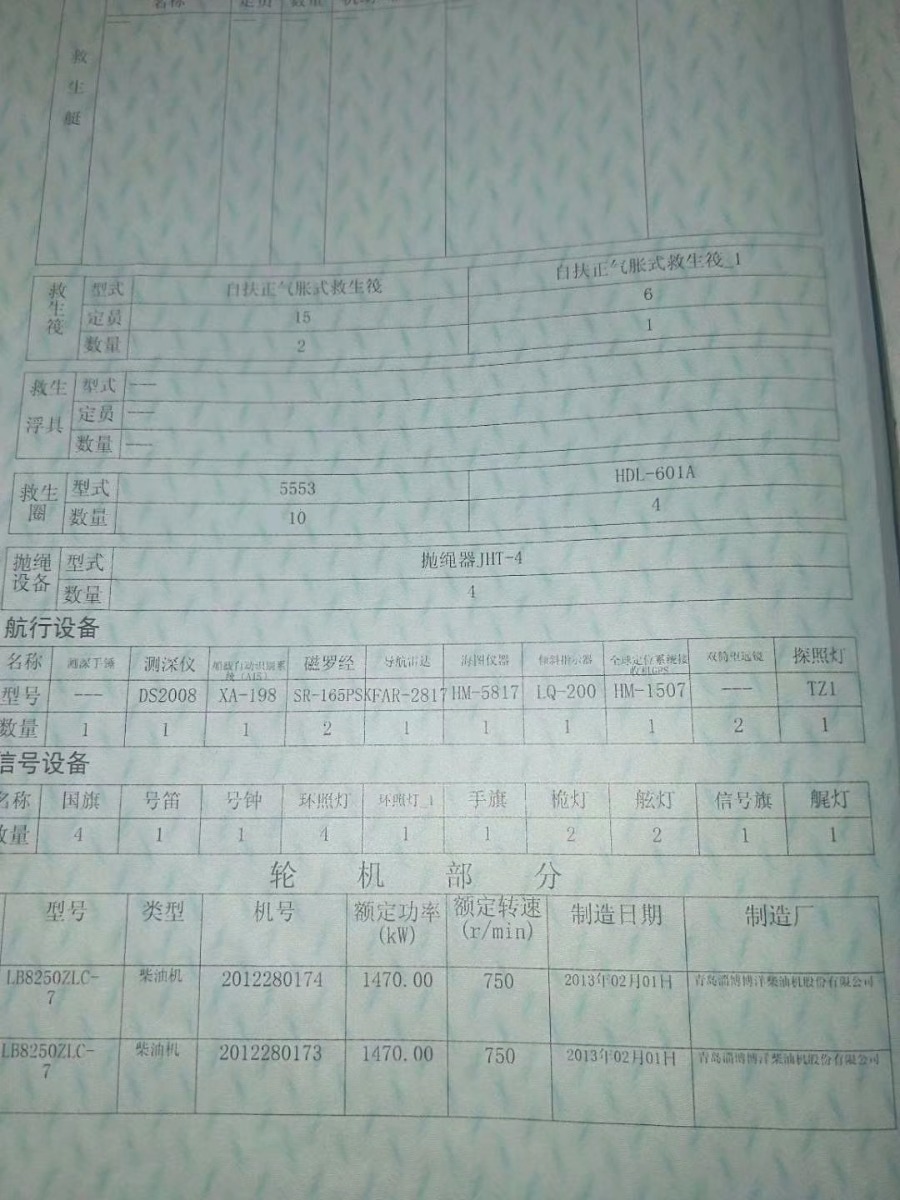 名称 定员 数量
救生艇
救生筏 型式 自扶正气胀式救生筏 自扶正气胀式救生筏_1
定员 15 6
数量 2 1
救生浮具 型式 ---
定员 ---
数量 ---
救生圈 型式 5553 HDL-601A
数量 10 4
抛绳设备 型式 抛绳器JHT-4
数量 4
航行设备
名称 测深手锤 测深仪 船载自动识别系统（AIS） 磁罗经 导航雷达 海图仪器 倾斜指示器 全球定位系统接收机GPS 双筒望远镜 探照灯
型号 --- DS2008 XA-198 SR-165PSK FAR-2817 HM-5817 LQ-200 HM-1507 --- TZ1
数量 1 1 1 2 1 1 1 1 2 1
信号设备
名称 国旗 号笛 号钟 环照灯 环照灯_1 手旗 桅灯 舷灯 信号旗 艉灯
数量 4 1 1 4 1 1 2 2 1 1
轮机部分
型号 类型 机号 额定功率(kW) 额定转速(r/min) 制造日期 制造厂
LB8250ZLC-7 柴油机 2012280174 1470.00 750 2013年02月01日 青岛淄博博洋柴油机股份有限公司
LB8250ZLC-7 柴油机 2012280173 1470.00 750 2013年02月01日 青岛淄博博洋柴油机股份有限公司